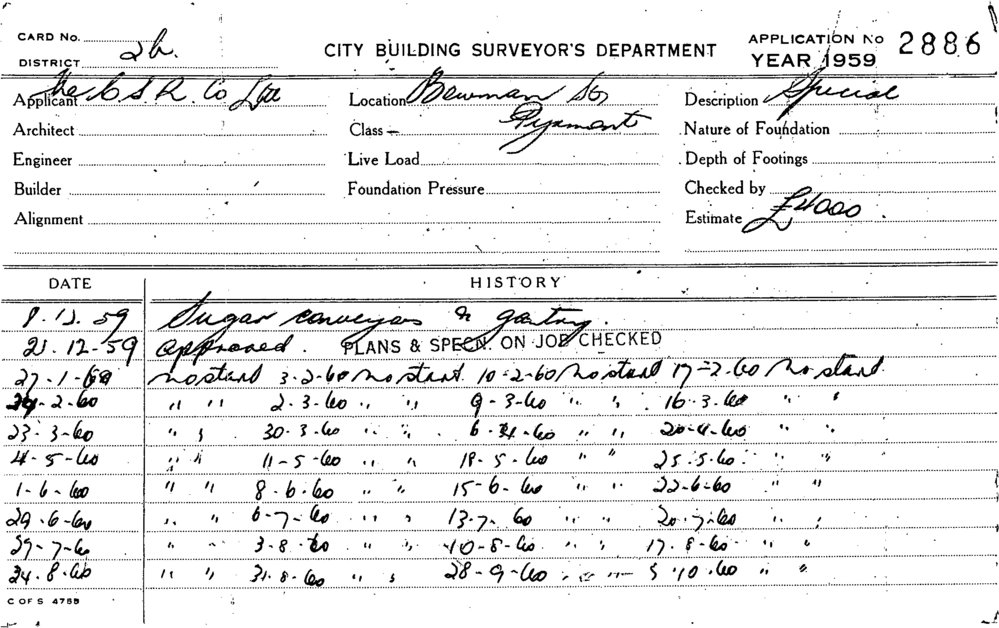 CARD No.
DISTRICT 2b.
CITY BUILDING SURVEYOR'S DEPARTMENT
APPLICATION No 2886
YEAR 1959
Applicant The C S R. Co Ltd Location Bowman St, Description Special
Architect Class Pyrmont Nature of Foundation
Engineer Live Load Depth of Footings
Builder Foundation Pressure Checked by
Alignment Estimate £4000.
DATE HISTORY
8.12.59 Sugar conveyors & gantry.
21.12-59 approved. PLANS & SPECN. ON JOB CHECKED
27-1-60 No start 3-2-60 No start 10-2-60 No start 17-2-60 No start
24-2-60 " " 2-3-60 " " 9-3-60 " " 16-3-60 " "
23-3-60 " " 30-3-60 " " 6-4-60 " " 20-4-60 " "
4-5-60 " " 11-5-60 " " 18-5-60 " " 25.5.60 " "
1-6-60 " " 8-6-60 " " 15-6-60 " " 22-6-60 " "
29-6-60 " " 6-7-60 " " 13-7-60 " " 20-7-60 " "
27-7-60 " " 3-8-60 " " 10-8-60 " " 17.8-60 " "
24.8.60 " " 31-8-60 " " 28-9-60 " " 5.10.60 " "
C OF S 4755